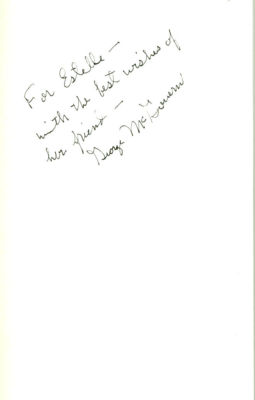 For Estelle —
with the best wishes of
her friend —
George McGovern